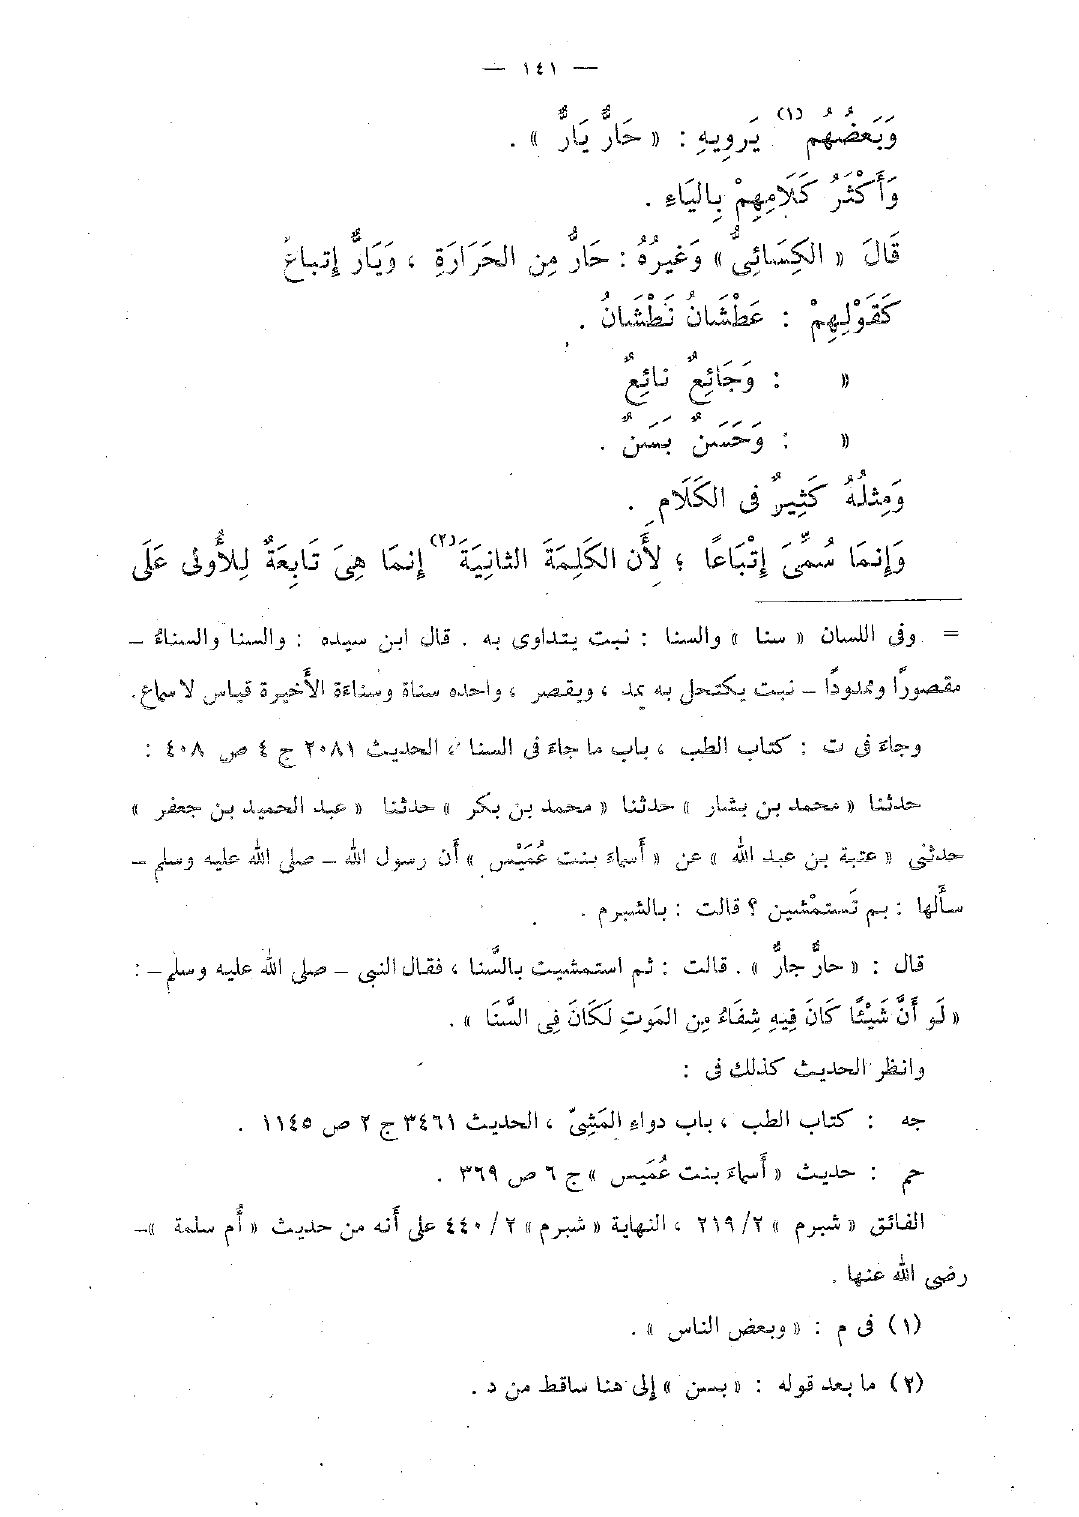 — ١٤١ —
وَبَعَضُهُم (١) يَروِيهِ : « حَارٌّ يَارٌّ » .
وَأَكْثَرُ كَلَامِهِمْ بِاليَاءِ .
قَالَ « الكِسَائِىُّ » وَغَيرُهُ : حَارٌّ مِن الحَرَارَةِ ، وَيَارٌّ إِتباعٌ
كَقَوْلِهِمْ : عَطْشَانُ نَطْشَانُ .
« : وَجَائِعٌ نائِعٌ
« : وَحَسَنٌ بَسَنٌ .
وَمِثلُهُ كَثِيرٌ فى الكَلَامِ .
وَإِنمَا سُمِّىَ إِتْبَاعًا ؛ لِأَن الكَلِمَةَ الثانِيَةَ (٢) إِنمَا هِىَ تَابِعَةٌ لِلأُولى عَلَى
= . وفى اللسان « سنا » والسنا : نبت يتداوى به . قال ابن سيده : والسنا والسناءُ –
مقصورًا وممدودًا – نبت يكتحل به يمد ، ويقصر ، واحده سناة وسناءة الأَخيرة قياس لاسماع .
وجاءَ فى ت : كتاب الطب ، باب ما جاءَ فى السنا ، الحديث ٢٠٨١ ج ٤ ص ٤٠٨ :
حدثنا « محمد بن بشار » حدثنا « محمد بن بكر » حدثنا « عبد الحميد بن جعفر »
حدثنى « عتبة بن عبد الله » عن « أَسماءَ بنت عُمَيْس » أَن رسول الله – صلى الله عليه وسلم –
سأَلها : بم تَستمْشين ؟ قالت : بالشبرم .
قال : « حارٌّ جارٌّ » . قالت : ثم استمشيت بالسَّنا ، فقال النبى – صلى الله عليه وسلم – :
« لَو أَنَّ شَيْئًا كَانَ فِيهِ شِفَاءٌ مِن المَوتِ لَكَانَ فِى السَّنَا » .
وانظر الحديث كذلك فى :
جه : كتاب الطب ، باب دواءِ المَشِىّ ، الحديث ٣٤٦١ ج ٢ ص ١١٤٥ .
حم : حديث « أَسماءَ بنت عُمَيس » ج ٦ ص ٣٦٩ .
الفائق « شبرم » ٢/ ٢١٩ ، النهاية « شبرم » ٢/ ٤٤٠ على أَنه من حديث « أُم سلمة » –
رضى الله عنها .
(١) فى م : « وبعض الناس » .
(٢) ما بعد قوله : « بسن » إلى هنا ساقط من د .